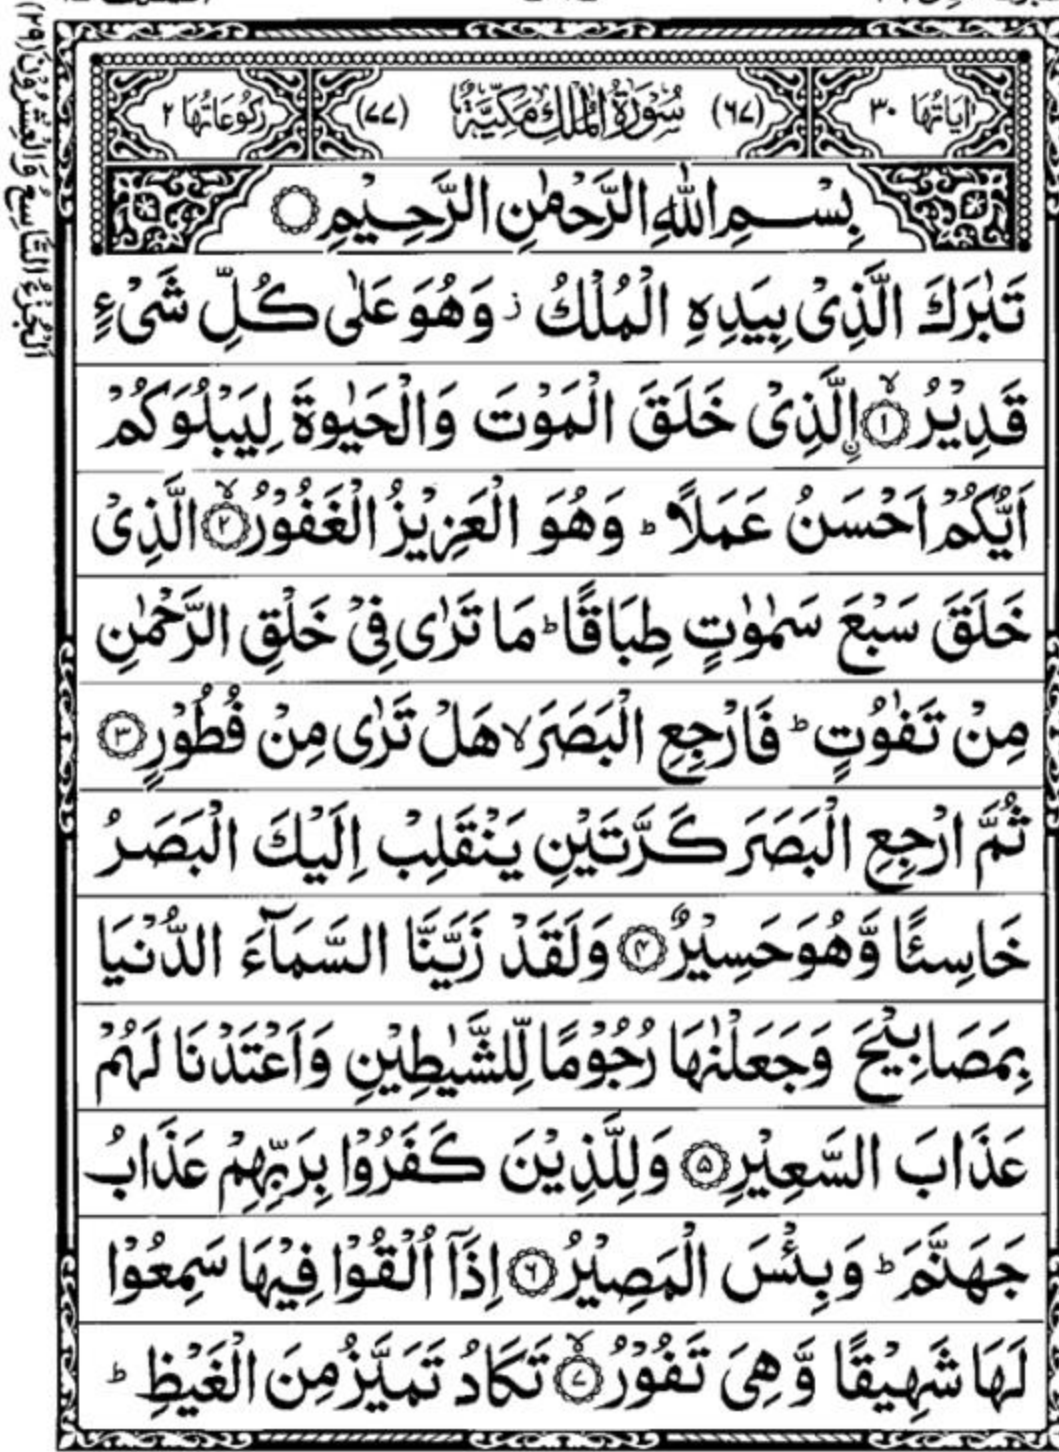 اٰيَاتُهَا ٣٠ (٦٧) سُوْرَةُ الْمُلْكِ مَكِّيَّةٌ (٧٧) رُكُوْعَاتُهَا ٢
بِسْمِ اللّٰهِ الرَّحْمٰنِ الرَّحِيْمِ
تَبٰرَكَ الَّذِىْ بِيَدِهِ الْمُلْكُ ز وَهُوَ عَلٰى كُلِّ شَىْءٍ
قَدِيْرُ ۙ﴿١﴾ اۨلَّذِىْ خَلَقَ الْمَوْتَ وَالْحَيٰوةَ لِيَبْلُوَكُمْ
اَيُّكُمْ اَحْسَنُ عَمَلًا ؕ وَهُوَ الْعَزِيْزُ الْغَفُوْرُ ۙ﴿٢﴾ الَّذِىْ
خَلَقَ سَبْعَ سَمٰوٰتٍ طِبَاقًا ؕ مَا تَرٰى فِىْ خَلْقِ الرَّحْمٰنِ
مِنْ تَفٰوُتٍ ؕ فَارْجِعِ الْبَصَرَ ۙ هَلْ تَرٰى مِنْ فُطُوْرٍ ﴿٣﴾
ثُمَّ ارْجِعِ الْبَصَرَ كَرَّتَيْنِ يَنْقَلِبْ اِلَيْكَ الْبَصَرُ
خَاسِئًا وَّهُوَ حَسِيْرٌ ﴿۴﴾ وَلَقَدْ زَيَّنَّا السَّمَآءَ الدُّنْيَا
بِمَصَابِيْحَ وَجَعَلْنٰهَا رُجُوْمًا لِّلشَّيٰطِيْنِ وَاَعْتَدْنَا لَهُمْ
عَذَابَ السَّعِيْرِ ﴿۵﴾ وَلِلَّذِيْنَ كَفَرُوْا بِرَبِّهِمْ عَذَابُ
جَهَنَّمَ ؕ وَبِئْسَ الْمَصِيْرُ ﴿۶﴾ اِذَآ اُلْقُوْا فِيْهَا سَمِعُوْا
لَهَا شَهِيْقًا وَّهِىَ تَفُوْرُ ۙ﴿٧﴾ تَكَادُ تَمَيَّزُ مِنَ الْغَيْظِ ؕ
اَلْجُزْءُ التَّاسِعُ وَالْعِشْرُوْنَ (٢٩)